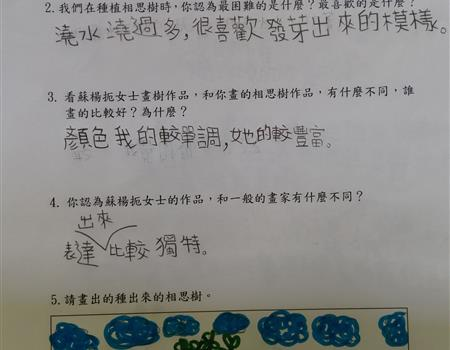 2. 我們在種植相思樹時，你認為最困難的是什麼？最喜歡的是什麼？
澆水澆過多，很喜歡發芽出來的模樣。
3. 看蘇楊扼女士畫樹作品，和你畫的相思樹作品，有什麼不同，誰
畫的比較好？為什麼？
顏色我的較單調，她的較豐富。
4. 你認為蘇楊扼女士的作品，和一般的畫家有什麼不同？
出來
表達 比較獨特。
5. 請畫出的種出來的相思樹。